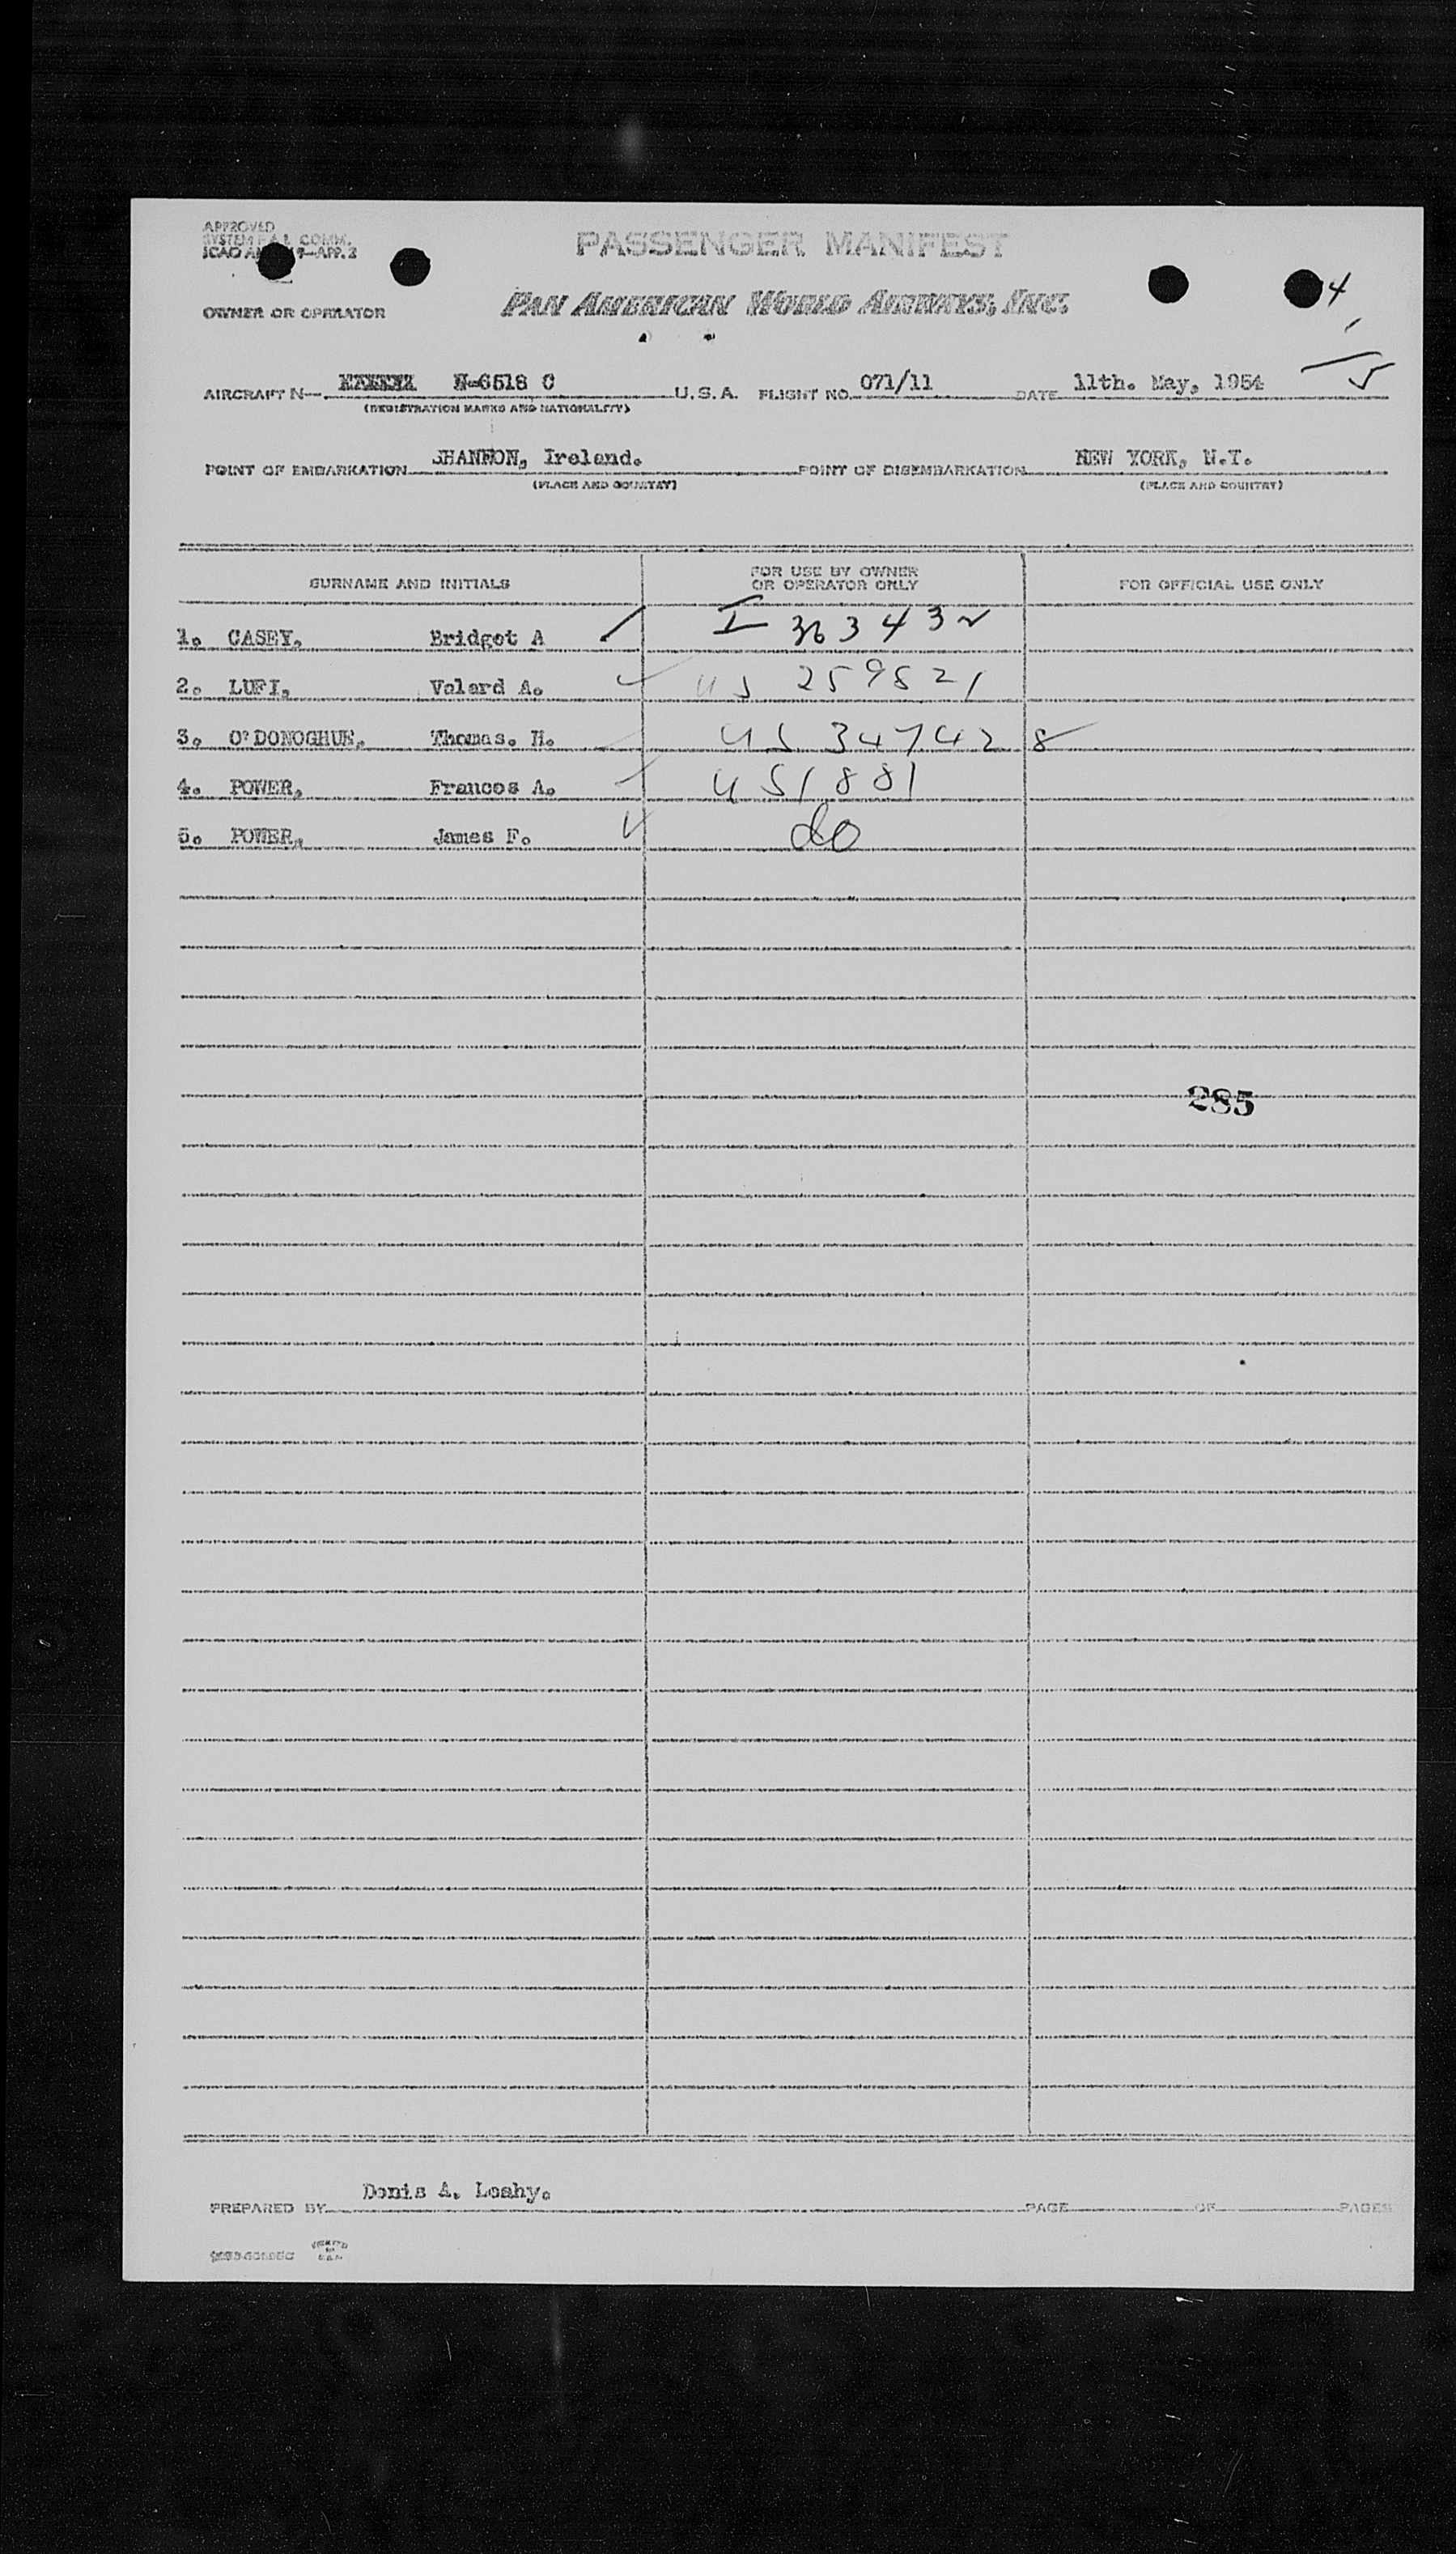 APPROVED
SYSTEM F.A.L. COMM.
ICAO 9-APP. 2
PASSENGER MANIFEST
OWNER OR OPERATOR PAN AMERICAN WORLD AIRWAYS, INC.
4
1
5
AIRCRAFT N-. N-6518 C U.S.A. FLIGHT NO. 071/11 DATE 11th. May, 1954
(REGISTRATION MARKS AND NATIONALITY)
POINT OF EMBARKATION SHANNON, Ireland. POINT OF DISEMBARKATION NEW YORK, N.Y.
(PLACE AND COUNTRY) (PLACE AND COUNTRY)
SURNAME AND INITIALS FOR USE BY OWNER OR OPERATOR ONLY FOR OFFICIAL USE ONLY
1. CASEY, Bridget A I 363432
2. LUFI, Velard A. US 259521
3. O'DONOGHUE, Thomas. H. US 347428
4. POWER, Frances A. US 1881
5. POWER, James F. do
285
PREPARED BY Denis A. Leahy. PAGE OF PAGES
PRINTED
IN
U.S.A.